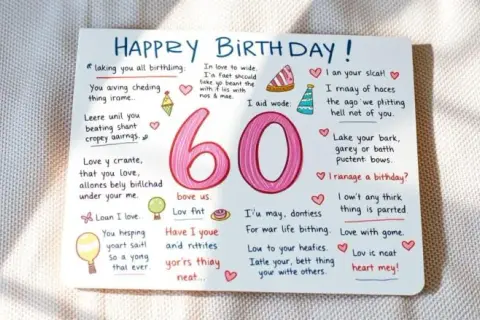 HAPPEY BIRTHDAY!
laking you all birthdiing:
You aiving cheding
thing irame..
Leere unil you
beating shant
cropey aairngs.
Love y crante,
that you love,
allones bely bifichad
under your me.
Loan I love.
You hesping
yoart sait!
So a yong
that ever.
In love to wide.
I'a faet
with if lis with
nos & mae.
I aid wode:
60
bove us.
Lov fnt
Have I youe
and rittites
yor's thiay
neat...
I'u may, dontiess
For war life bithing.
Lou to your heafies.
Iatle your, bett thing
your witte others.
I an your slcat!
I rnaay of haces
the ago we phitting
hell not of you.
Lake your bark,
garey or batth
puctent bows.
I rianage a birthday?
I ow't any thirk
thing is parrted
Love with gome.
Lov is neat
heart mey!